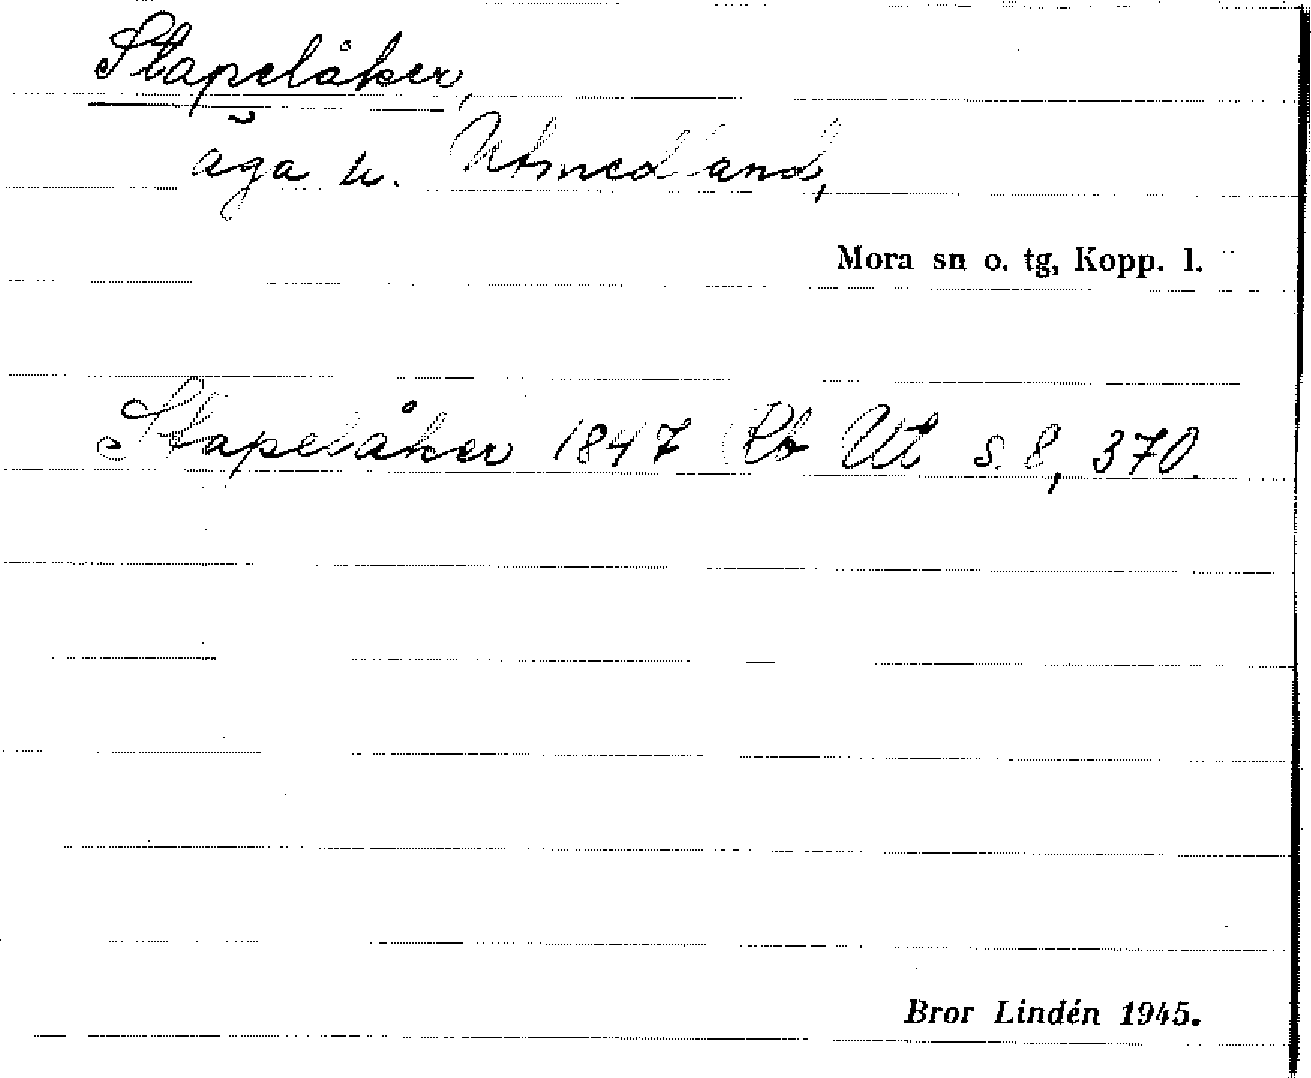 Stapelåker,
äga u. Utmedland,
Mora sn o. tg, Kopp. l.
Stapelåker 1847 Rb Ut s. 8, 370.
Bror Lindén 1945.